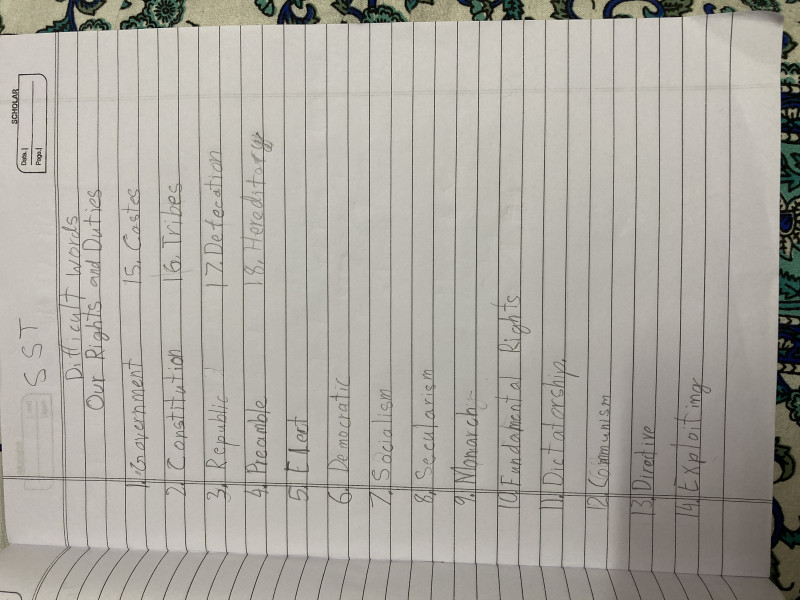 SCHOLAR
Date
Page
SST
Difficult Words
Our Rights and Duties
1. Government
2. Constitution
3. Republic
4. Preamble
5.
6. Democratic
7. Socialism
8. Secularism
9.
10. Fundamental Rights
11. Dictatorship.
12. Communism
13.
14. Exploiting
15. Castes
16. Tribes
17.
18. Hereditary